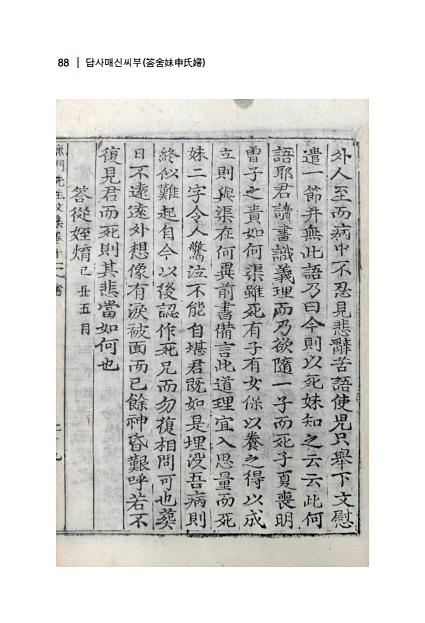 88 | 답사매신씨부(答舍妹申氏婦)
外人至而病中不忍見悲辭苦語使児只舉下文慰
遣一節并無此語乃曰今則以死妹知之云云此何
語耶君讀書識義理而乃欲隨一子而死子夏喪明
曾子之責如何渠雖死有子有女保以養之得以成
立則與渠在何異前書備言此道理宜入思量而死
妹二字令人驚泣不能自堪君既如是埋没吾病則
終似難起自今以後認作死兄而勿復相問可也葬
日不遠遠外想像有淚被面而已餘神昏艱呼若不
復見君而死則其悲當如何也
答從姪焴 己丑五月
先生文集卷十 書